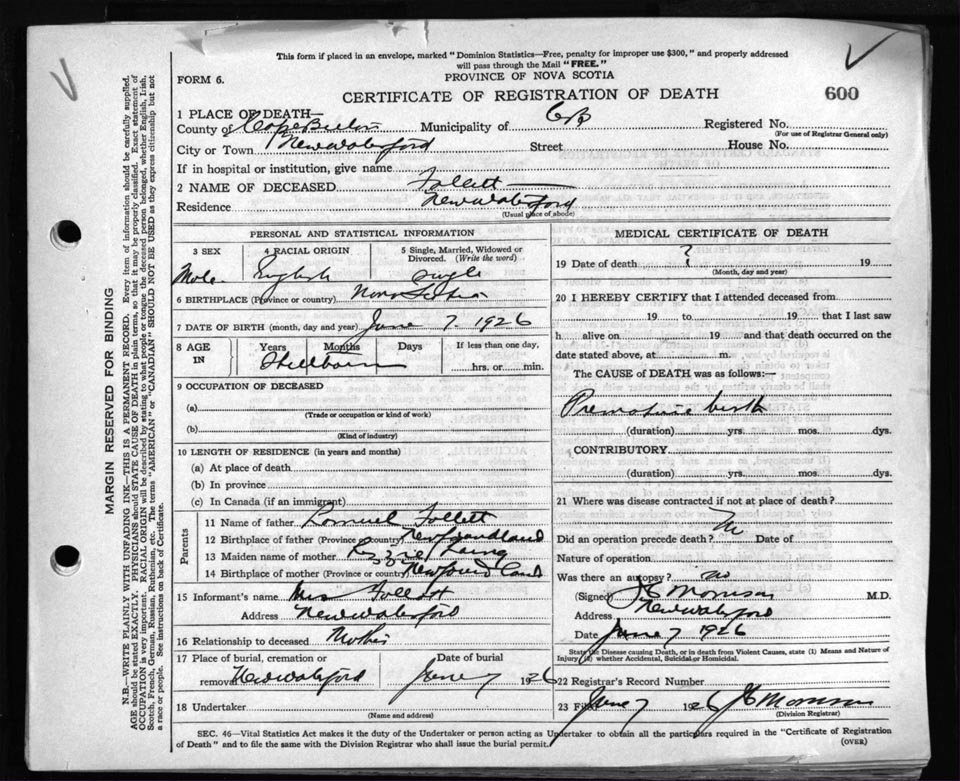 This form if placed in an envelope, marked "Dominion Statistics—Free, penalty for improper use $300," and properly addressed
will pass through the Mail "FREE."
FORM 6.
PROVINCE OF NOVA SCOTIA
CERTIFICATE OF REGISTRATION OF DEATH
600
1 PLACE OF DEATH—
County of Cape Breton Municipality of CB Registered No.
(For use of Registrar General only)
City or Town New Waterford Street House No.
If in hospital or institution, give name
2 NAME OF DECEASED Follett
Residence New Waterford
(Usual place of abode)
PERSONAL AND STATISTICAL INFORMATION
3 SEX 4 RACIAL ORIGIN 5 Single, Married, Widowed or
Divorced. (Write the word)
Male English Single
6 BIRTHPLACE (Province or country) Nova Scotia
7 DATE OF BIRTH (month, day and year) June 7. 1926
8 AGE IN Years Months Days If less than one day,
Stillborn hrs. or min.
9 OCCUPATION OF DECEASED
(a)
(Trade or occupation or kind of work)
(b)
(Kind of industry)
10 LENGTH OF RESIDENCE (in years and months)
(a) At place of death
(b) In province
(c) In Canada (if an immigrant)
Parents
11 Name of father Follett
12 Birthplace of father (Province or country) Newfoundland
13 Maiden name of mother Lizzie Laing
14 Birthplace of mother (Province or country) Newfoundland
15 Informant's name Mrs Follett
Address New Waterford
16 Relationship to deceased Mother
17 Place of burial, cremation or Date of burial
removal New Waterford June 7 1926
18 Undertaker
(Name and address)
MEDICAL CERTIFICATE OF DEATH
19 Date of death ? 19
(Month, day and year)
20 I HEREBY CERTIFY that I attended deceased from
19 to 19 that I last saw
h alive on 19 and that death occurred on the
date stated above, at m.
The CAUSE of DEATH was as follows:—
Premature birth
(duration) yrs. mos. dys.
CONTRIBUTORY
(duration) yrs. mos. dys.
21 Where was disease contracted if not at place of death?
Did an operation precede death? No Date of
Nature of operation
Was there an autopsy? no
(Signed) Morrison M.D.
Address New Waterford
Date June 7 1926
State the Disease causing Death, or in death from Violent Causes, state (1) Means and Nature of
Injury (2) whether Accidental, Suicidal or Homicidal.
22 Registrar's Record Number
23 Filed June 7 1926 Morrison
(Division Registrar)
SEC. 46—Vital Statistics Act makes it the duty of the Undertaker or person acting as Undertaker to obtain all the particulars required in the "Certificate of Registration
of Death" and to file the same with the Division Registrar who shall issue the burial permit.
(OVER)
MARGIN RESERVED FOR BINDING
N.B.—WRITE PLAINLY WITH UNFADING INK—THIS IS A PERMANENT RECORD. Every item of information should be carefully supplied.
AGE should be stated EXACTLY. PHYSICIANS should STATE CAUSE OF DEATH in plain terms, so that it may be properly classified. Exact statement of
OCCUPATION is very important. RACIAL ORIGIN will be described by stating to what people or tongue the deceased person belonged, whether English, Irish,
Scotch, French, German, Russian, Ruthenian, etc. The terms "AMERICAN" or "CANADIAN" SHOULD NOT BE USED as they express citizenship but not
a race or people. See instructions on back of Certificate.